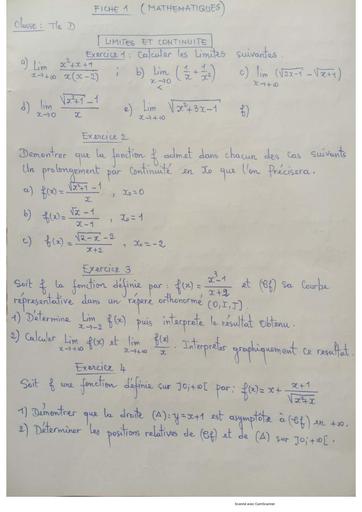 FICHE 1 (MATHEMATIQUES)
Classe : Tle D
LIMITES ET CONTINUITE
Exercice 1 : Calculer les limites suivantes.
a) lim x→+∞ (x²+x+1)/(x(x-2)) ; b) lim x→0 < (1/x + 1/x²) c) lim x→+∞ (√(2x-1) - √(x+1))
d) lim x→0 (√(x²+1) - 1)/x e) lim x→+∞ √(x²+3x-1) f)
Exercice 2
Demontrer que la fonction f admet dans chacun des cas suivants
Un prolongement par continuité en x₀ que l'on Précisera.
a) f(x) = (√(x²+1) - 1)/x , x₀ = 0
b) f(x) = (√x - 1)/(x-1) , x₀ = 1
c) f(x) = (√(2-x) - 2)/(x+2) , x₀ = -2
Exercice 3
Soit f la fonction définie par : f(x) = (x³-1)/(x+2) et (Cf) sa courbe
représentative dans un répere orthonormé (O, I, J)
1) Détermine lim x→-2 f(x) puis interprete le résultat obtenu.
2) Calculer lim x→+∞ f(x) et lim x→+∞ f(x)/x . Interpréter graphiquement ce resultat.
Exercice 4
Soit f une fonction définie sur ]0;+∞[ par : f(x) = x + (x+1)/√(x²+x)
1) Démontrer que la droite (Δ): y = x+1 est asymptote à (Cf) en +∞.
2) Déterminer les positions relatives de (Cf) et de (Δ) sur ]0;+∞[.
Scanné avec CamScanner